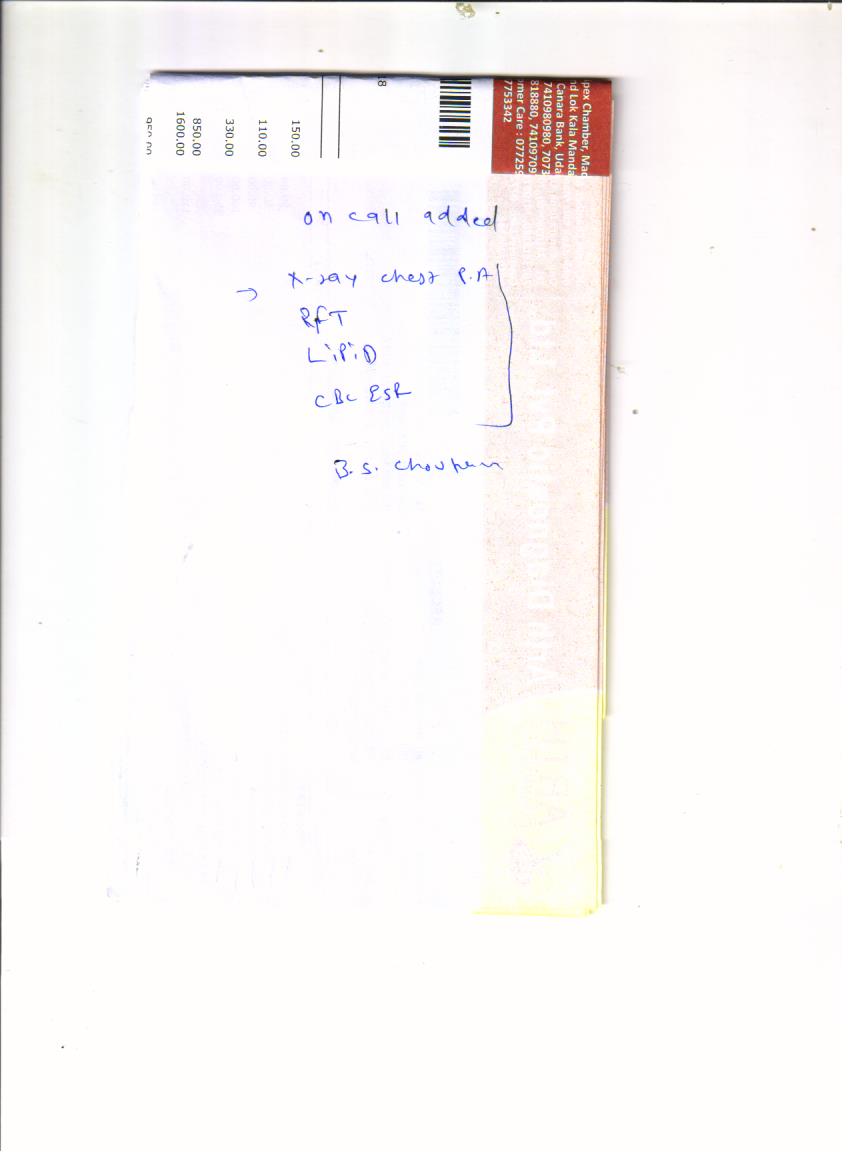 on call added
→ X-ray chest P.A
RFT
LiPiD
CBC ESR
B. S.
pex Chamber, Mad
d Lok Kala Manda
Canara Bank, Uda
7410980980, 7073
818880, 74109709
mer Care : 077259
7753342
18
150.00
110.00
330.00
850.00
1600.00